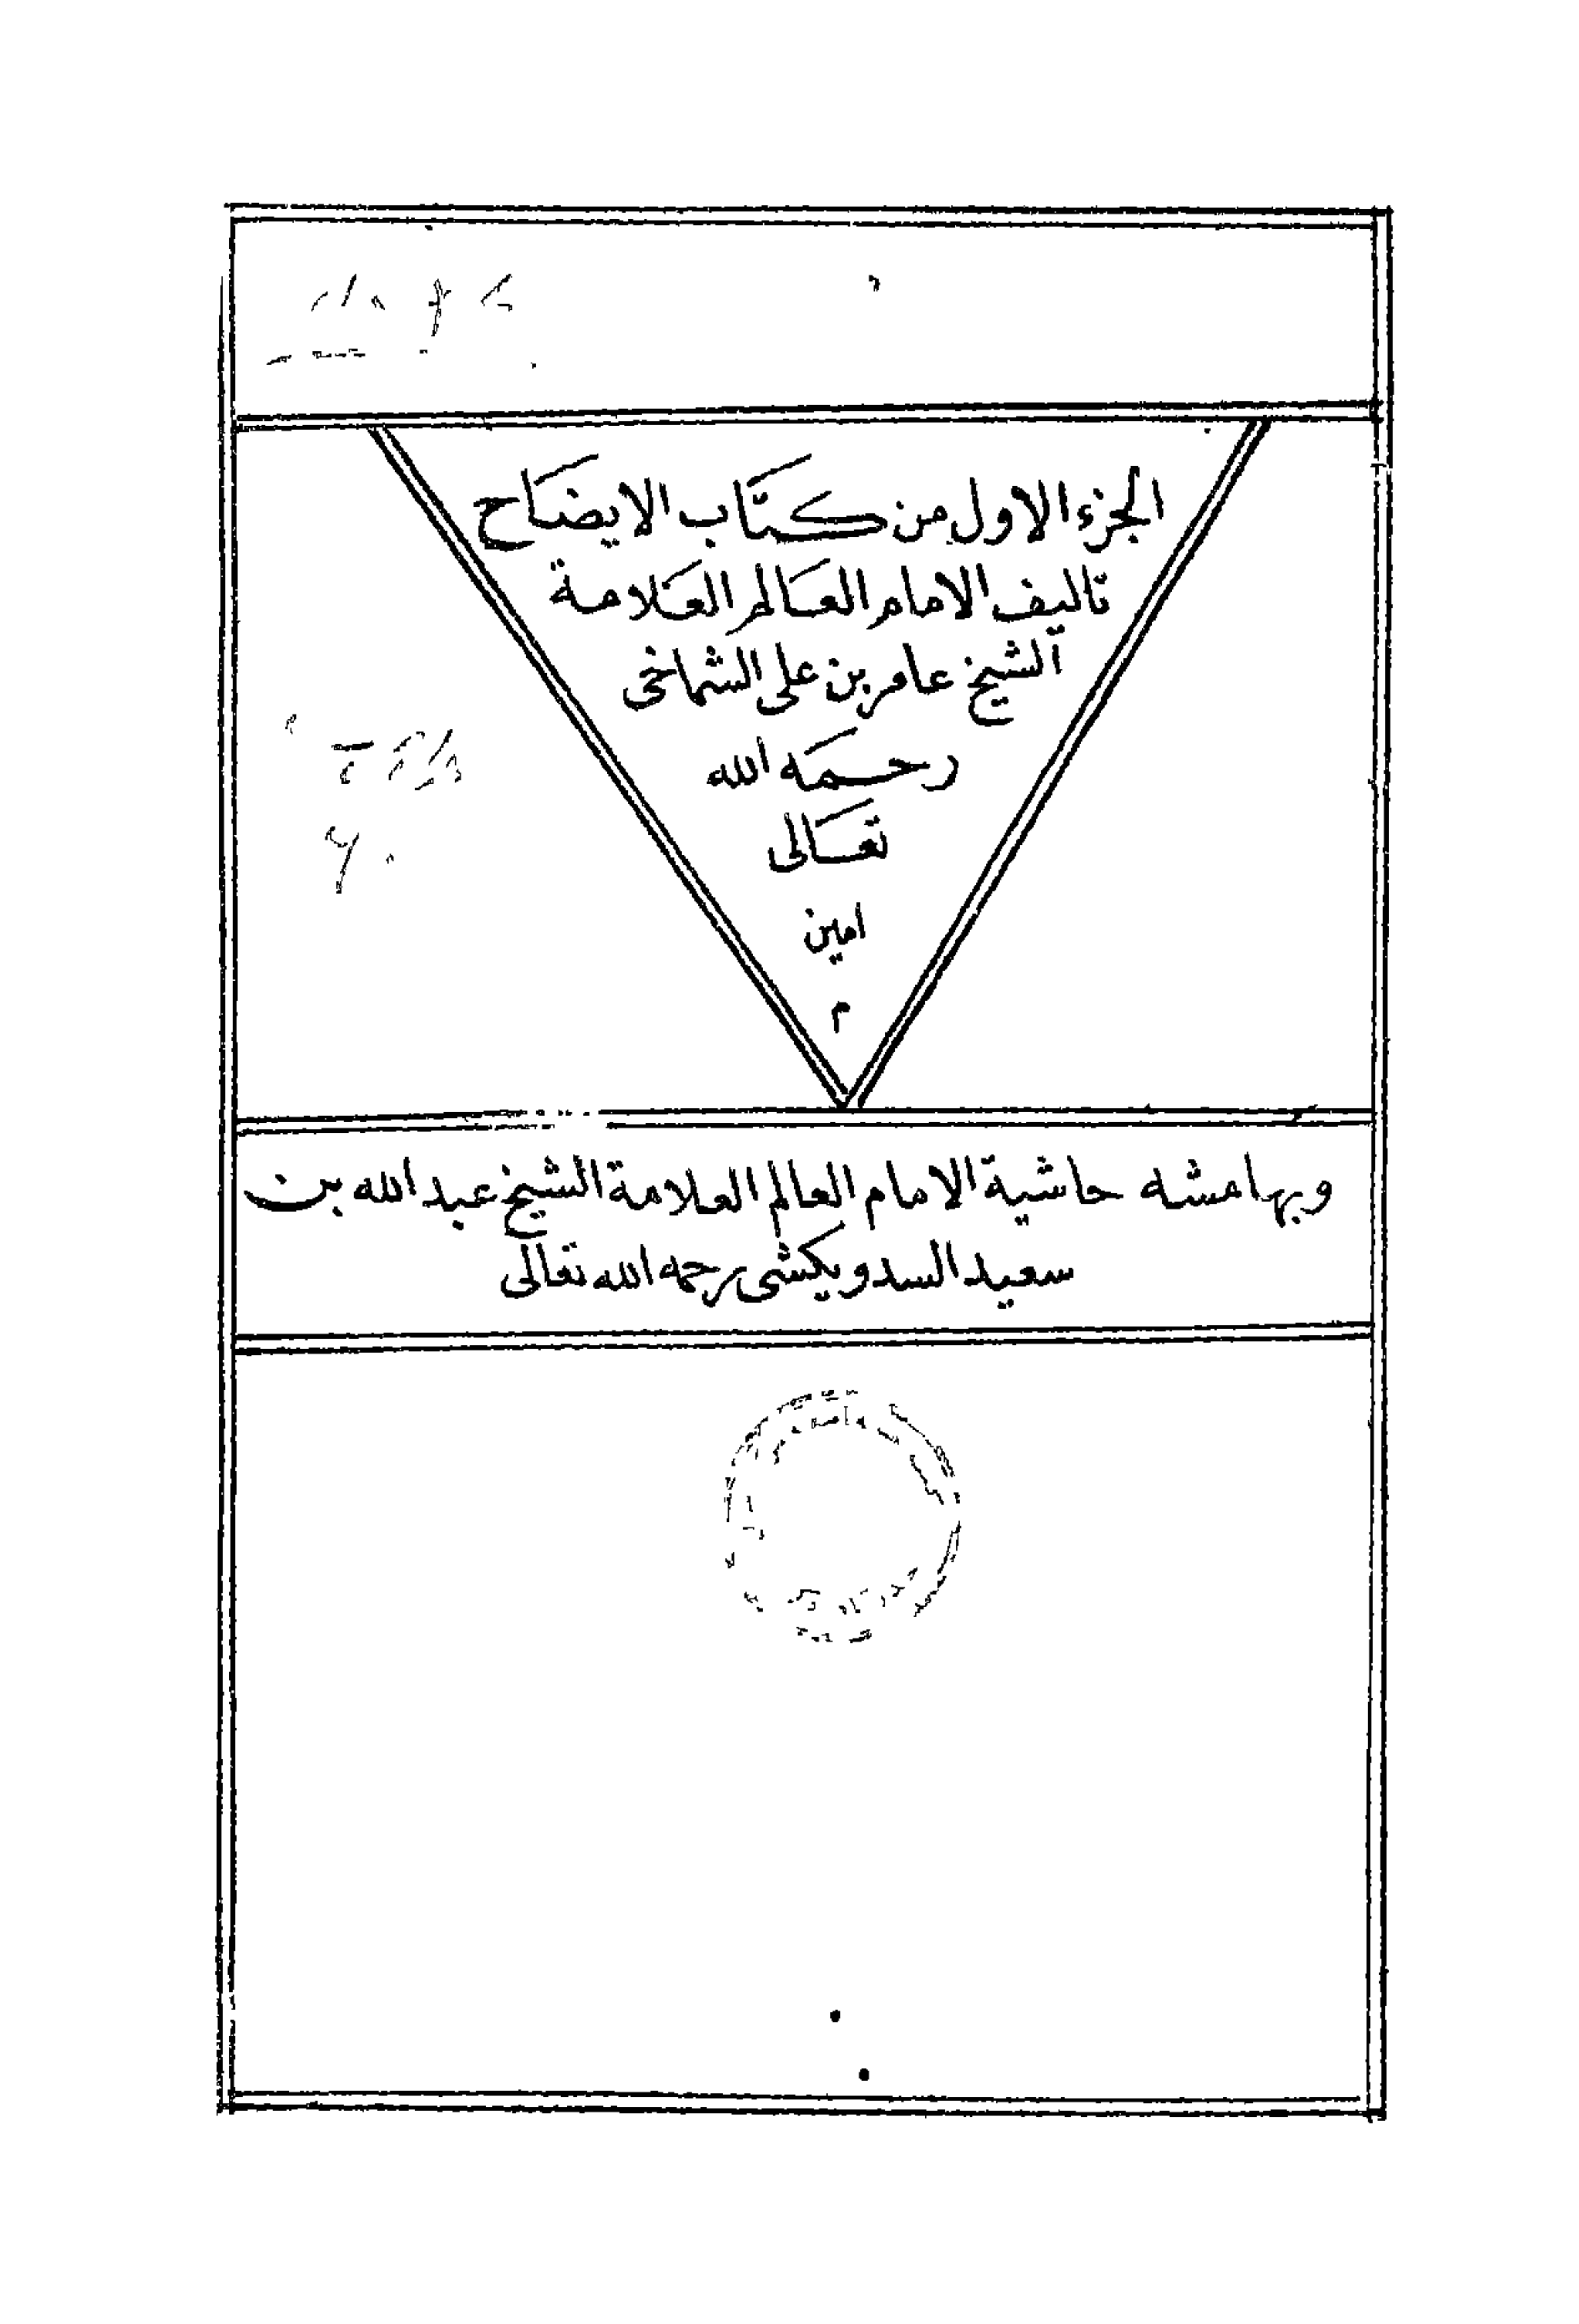 الجزء الاول من كتاب الايضاح
تاليف الامام العالم العلامة
الشيخ عامر بن على الشماخى
رحمه الله
تعالى
امين
م
وبهامشه حاشية الامام العالم العلامة الشيخ عبد الله بن
سعيد السدويكشى رحمه الله تعالى